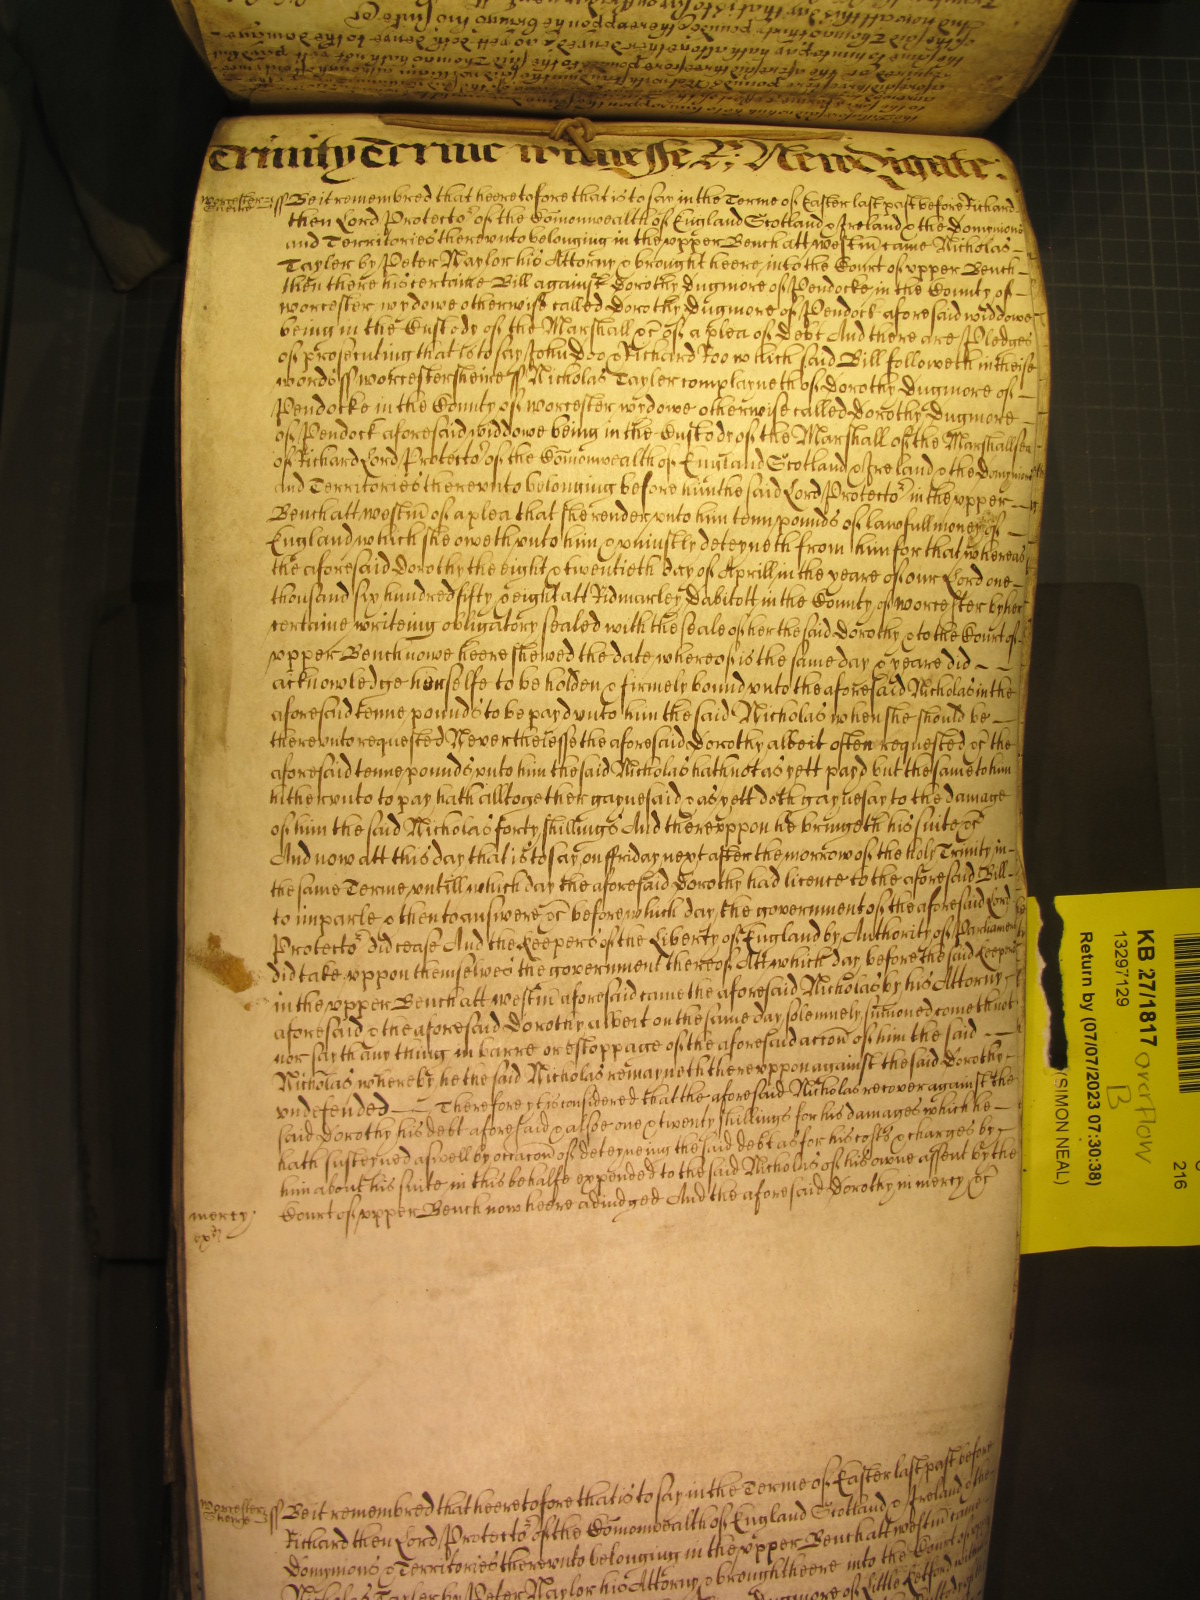 Trinity Terme witnesse &c; Newdigate:
Worcester
sheire ss Be it remembred that heeretofore that is to say in the Terme of Easter last past before Richard
then Lord Protector of the Comonwealth of England Scotland & Ireland & the Dominions
and Territories therevnto belonging in the vpper Bench att westm came Nicholas
Tayler by Peter Naylor his Attorny & brought heere into the Court of vpper Bench
then there his certaine Bill against Dorothy Dugmore of Pendocke in the County of
worcester wydowe otherwise called Dorothy Dugmore of Pendock aforesaid widdowe
being in the Custody of the Marshall &c of a plea of Debt And there are Pledges
of prosecuting that is to say John Doo & Richard Roo which said Bill followeth in theise
words ss worcestersheire ss Nicholas Tayler complayneth of Dorothy Dugmore of
Pendocke in the County of worcester wydowe otherwise called Dorothy Dugmore
of Pendock aforesaid widdowe being in the Custody of the Marshall of the Marshallsea
of Richard Lord Protector of the Comonwealth of England Scotland & Ireland & the Domynions
and Territories therevnto belonging before him the said Lord Protector in the vpper
Bench att westm of a plea that she render vnto him tenn pounds of lawfull money of
England which she oweth vnto him & vniustly deteyneth from him for that whereas
the aforesaid Dorothy the eight & twentieth day of Aprill in the yeare of our Lord one
thousand six hundred fifty & eight att Ridmarley Dabitott in the County of worcester by her
certaine writeing obligatory sealed with the seale of her the said Dorothy & to the Court of
vpper Bench nowe heere shewed the date whereof is the same day & yeare did
acknowledge herselfe to be holden & firmely bound vnto the aforesaid Nicholas in the
aforesaid tenne pounds to be payd vnto him the said Nicholas when she should be
therevnto requested Neverthelesse the aforesaid Dorothy albeit often requested &c the
aforesaid tenne pounds vnto him the said Nicholas hath not as yett payd but the same to him
hithervnto to pay hath alltogether gaynesaid & as yett doth gaynesay to the damage
of him the said Nicholas forty shillings And therevppon he bringeth his suite &c
And now att this day that is to say on ffriday next after the morrow of the holy Trinity in
the same Terme vntill which day the aforesaid Dorothy had licence to the aforesaid Bill
to imparle & then to answere &c before which day the government of the aforesaid Lord
Protector did cease And the Keepers of the Liberty of England by Authority of Parliament
did take vppon themselves the government thereof Att which day before the said Keepers
in the vpper Bench att westm aforesaid came the aforesaid Nicholas by his Attorny
aforesaid & the aforesaid Dorothy albeit on the same day solemnely sumoned cometh not
nor sayth any thing in barre or estoppage of the aforesaid accon of him the said
Nicholas whereby he the said Nicholas remayneth therevppon against the said Dorothy
vndefended Therefore yt is considered that the aforesaid Nicholas recover against the
said Dorothy his debt aforesaid & alsoe one & twenty shillings for his damages which he
hath susteyned aswell by occacon of deteyneing the said debt as for his costs & charges by
him about his suite in this behalfe expended to the said Nicholas of his owne assent by the
mercy: Court of vpper Bench now heere adiudged And the aforesaid Dorothy in mercy &c
Worcester
sheire ss Be it remembred that heeretofore that is to say in the Terme of Easter last past before
Richard then Lord Protector of the Comonwealth of England Scotland & Ireland & the
Domynions & Territories therevnto belonging in the vpper Bench att westm came
Nicholas Tayler by Peter Naylor his Attorny & brought heere into the Court of vpper
Dugmore of Little
KB 27/1817 overflow
B
13297129
Return by (07/07/2023 07:30:38)
(SIMON NEAL)
216